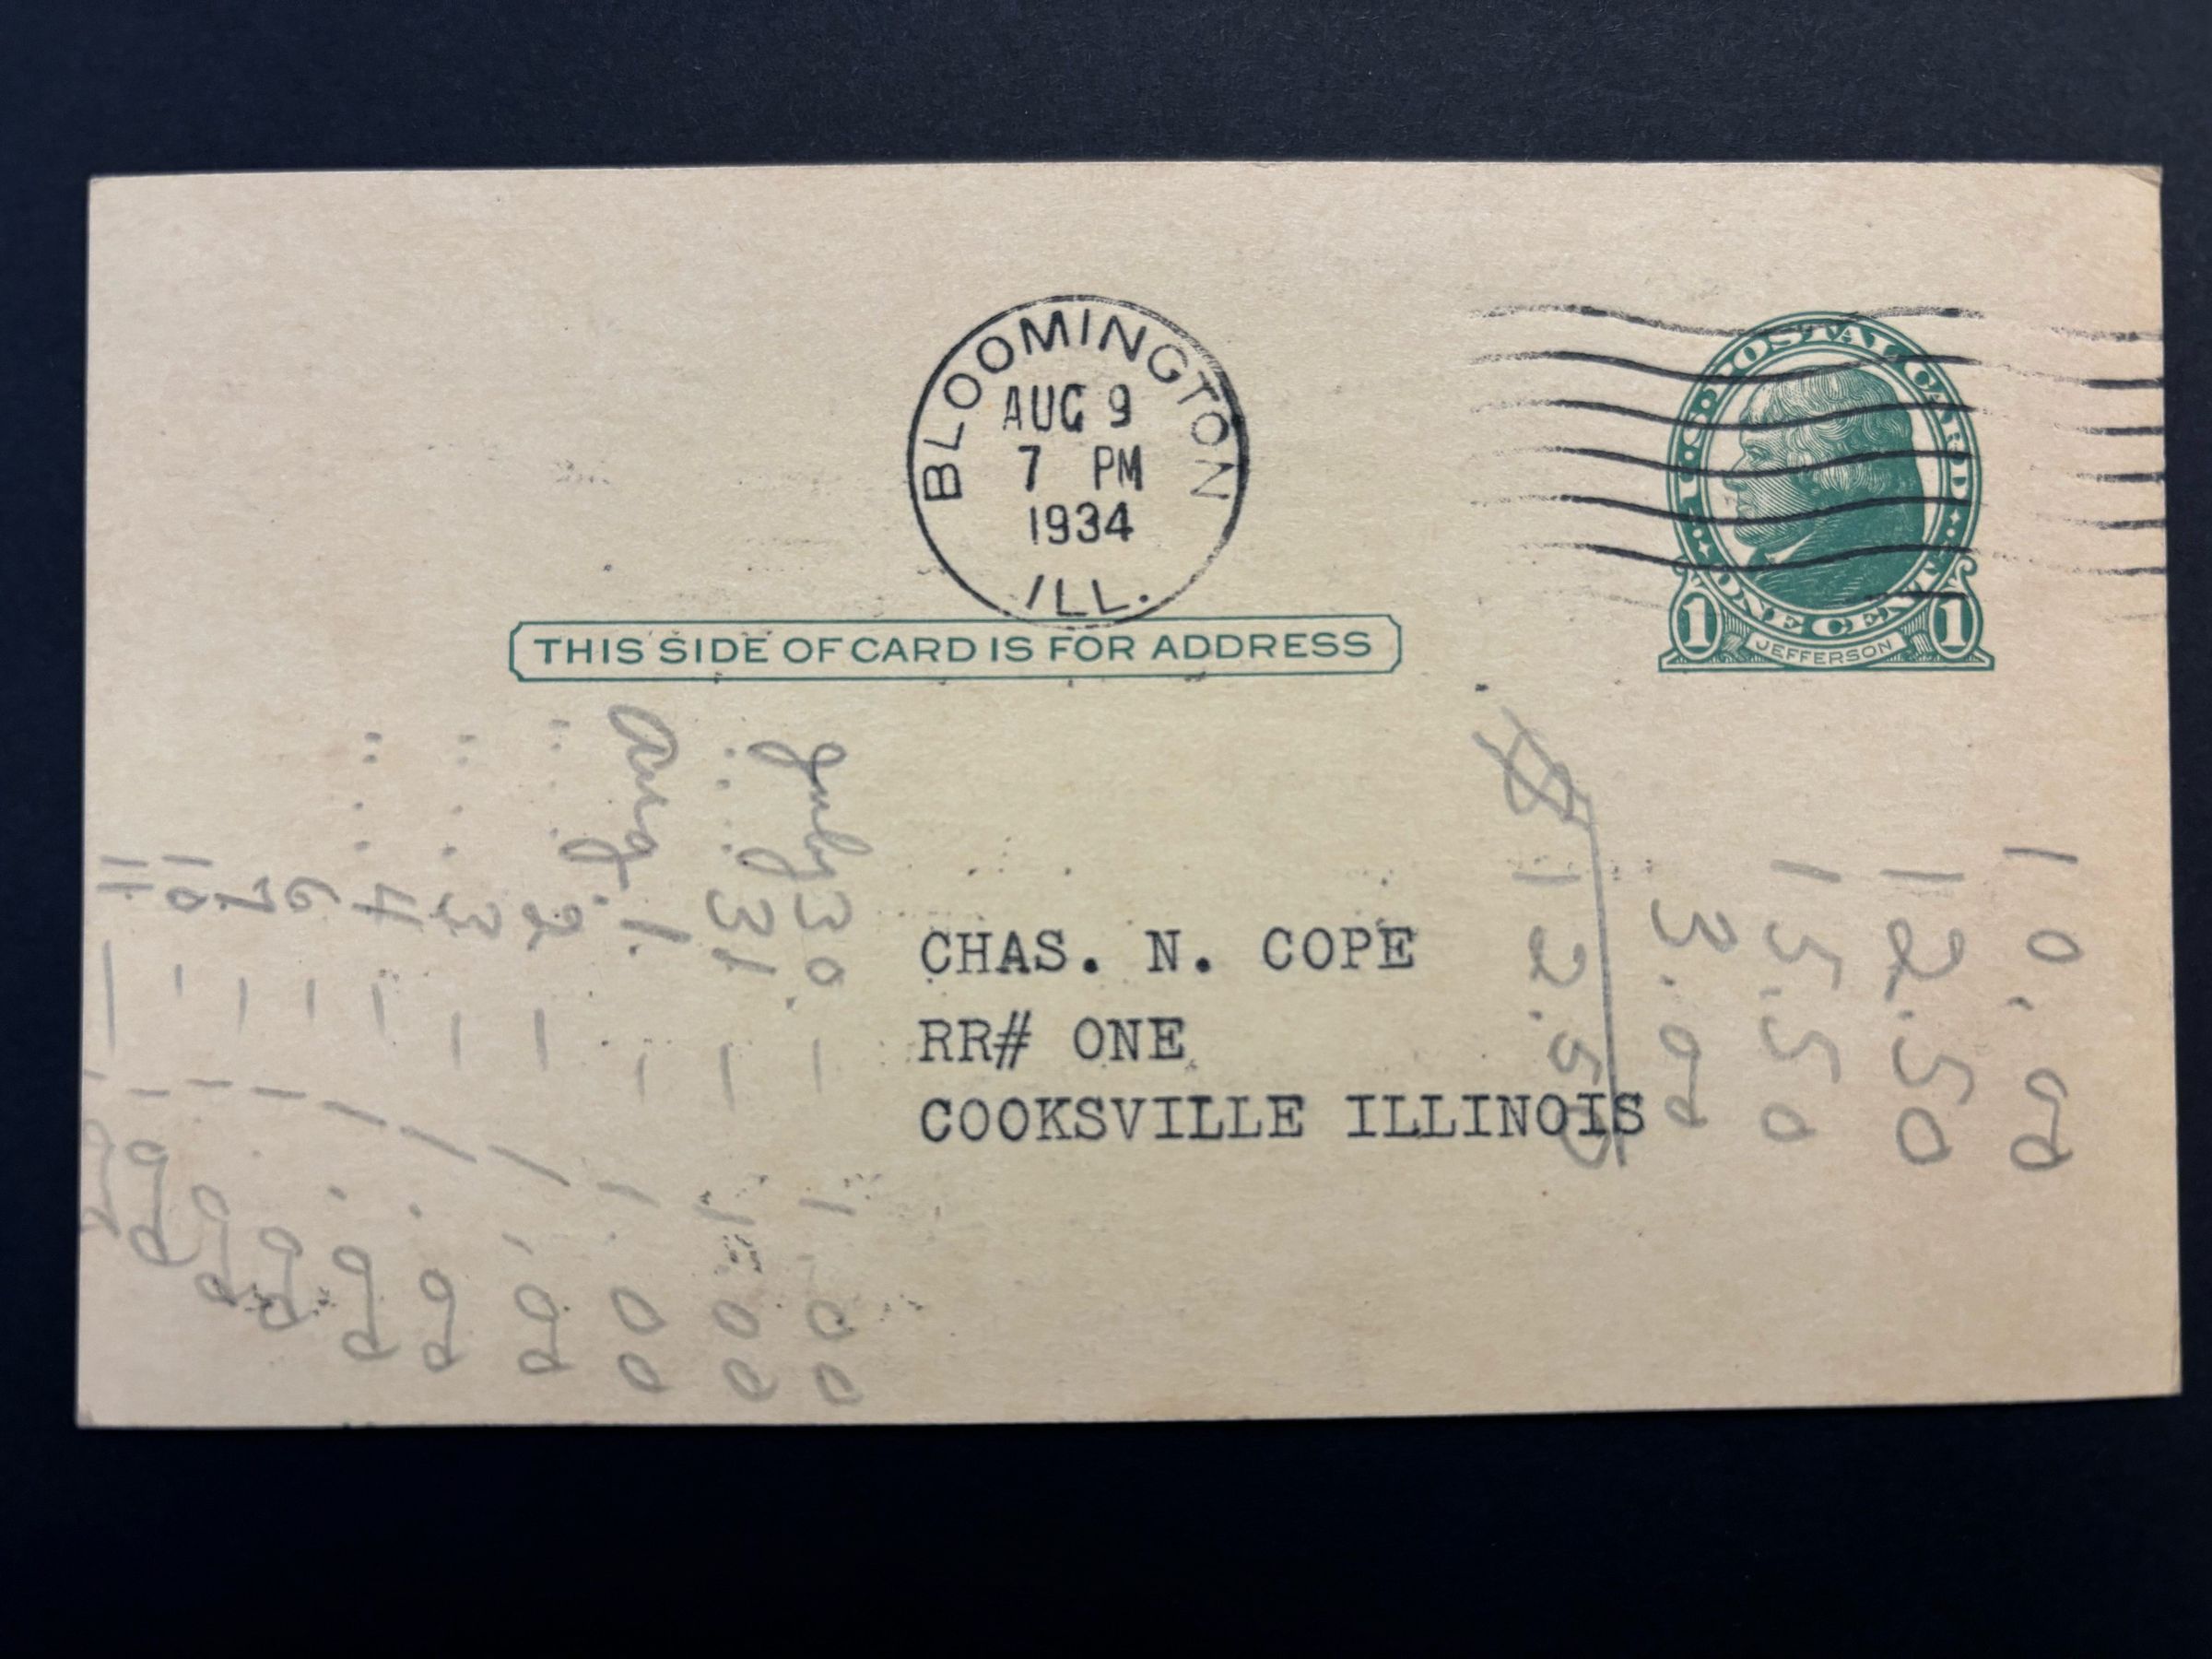 BLOOMINGTON
AUG 9
7 PM
1934
ILL.
U.S. POSTAL CARD
ONE CENT
1 JEFFERSON 1
THIS SIDE OF CARD IS FOR ADDRESS
CHAS. N. COPE
RR# ONE
COOKSVILLE ILLINOIS
10.00
12.50
15.50
3.00
$ 12.50
July 30. - 1.00
" " 31 - 1.00
Aug. 1. - 1.00
" " 2 - 1.00
" " 3 - 1.00
" " 4 - 1.00
6 - 1.00
7 - 1.00
10 - 1.00
11 - 1.00